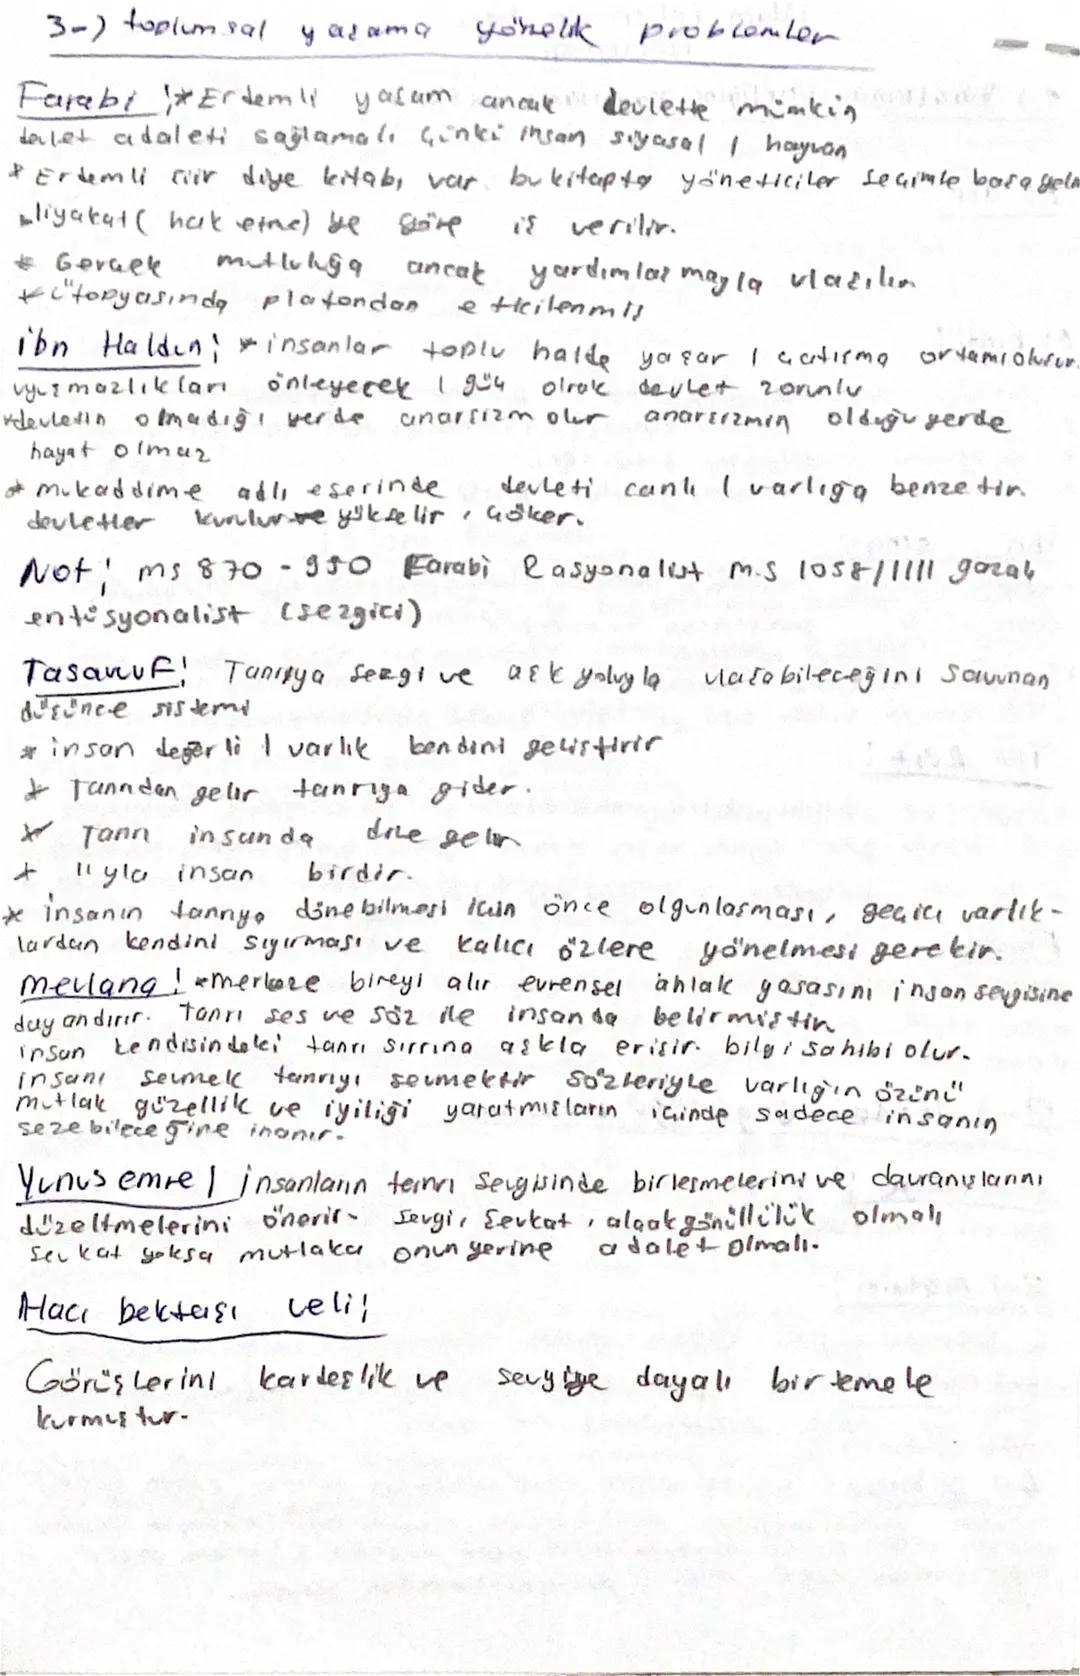 3-) toplumsal yaşama yönelik problemler
Farabi : * Erdemli yaşam ancak devlette mümkün
devlet adaleti sağlamalı çünkü insan siyasal 1 hayvan
* Erdemli şiir diye kitabı var. bu kitapta yöneticiler seçimle başa gelm
liyakat (hak etme) ye göre iş verilir.
* Gerçek mutluluğa ancak yardımlaşmayla ulaşılır
* ütopyasında platondan etkilenmiş
ibn Haldun: * insanlar toplu halde yaşar 1 çatışma ortamı oluşur.
uyuşmazlıkları önleyecek 1 güç olrak devlet zorunlu
* devletin olmadığı yerde anarşizm olur anarşizmin olduğu yerde
hayat olmaz
* mukaddime adlı eserinde devleti canlı 1 varlığa benzetir.
devletler kurulur ve yükselir, çöker.
Not: ms 870 - 950 Farabi Rasyonalist m.s 1058/1111 gazali
entüsyonalist (sezgici)
Tasavvuf: Tanrıya sezgi ve aşk yoluyla ulaşabileceğini savunan
düşünce sistemi
* insan değerli 1 varlık kendini geliştirir
* Tanrıdan gelir tanrıya gider.
* Tanrı insanda dile gelir.
* " yla insan birdir.
* insanın tanrıya dönebilmesi için önce olgunlaşması, geçici varlık-
lardan kendini sıyırması ve kalıcı özlere yönelmesi gerekir.
mevlana : * merkeze bireyi alır evrensel ahlak yasasını insan sevgisine
dayandırır. Tanrı ses ve söz ile insanda belirmiştir.
insan kendisindeki tanrı sırrına aşkla erişir. bilgi sahibi olur.
insanı sevmek tanrıyı sevmektir sözleriyle varlığın özünü"
mutlak güzellik ve iyiliği yaratmışların içinde sadece insanın
sezebileceğine inanır.
Yunus emre | insanların tanrı sevgisinde birleşmelerini ve davranışlarını
düzeltmelerini önerir. Sevgi, şevkat, alçakgönüllülük olmalı
Şevkat yoksa mutlaka onun yerine adalet olmalı.
Hacı bektaşı veli:
Görüşlerini kardeşlik ve sevgiye dayalı bir temele
kurmuştur.